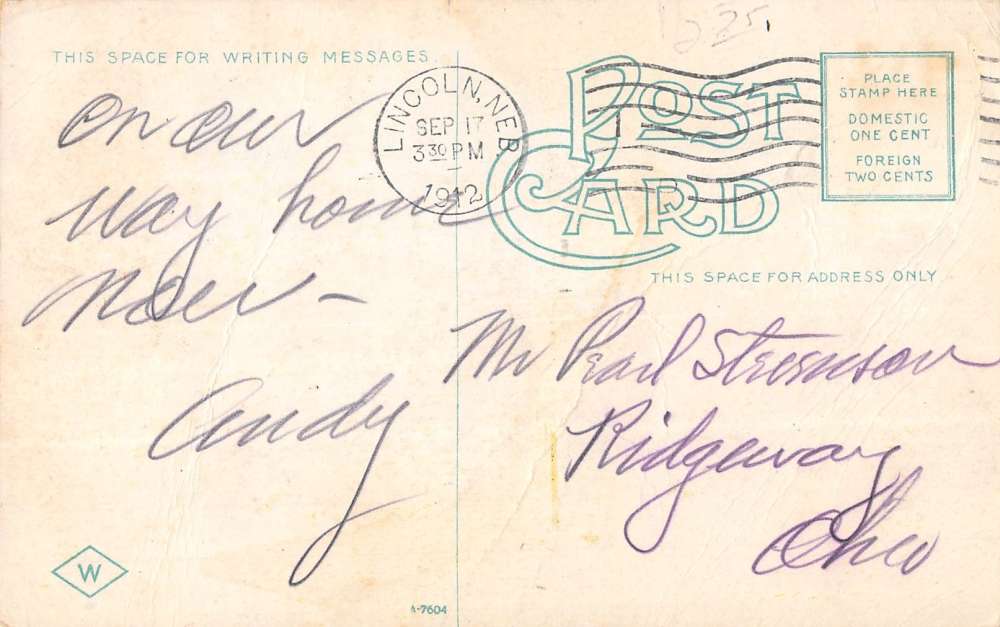 1225,
THIS SPACE FOR WRITING MESSAGES.
LINCOLN, NEB
SEP 17
3 30 PM
1942
POST
CARD
PLACE
STAMP HERE
DOMESTIC
ONE CENT
FOREIGN
TWO CENTS
THIS SPACE FOR ADDRESS ONLY
On our
way home
Andy
Mr Pearl
Ridgeway
Ohio
W
A-7604